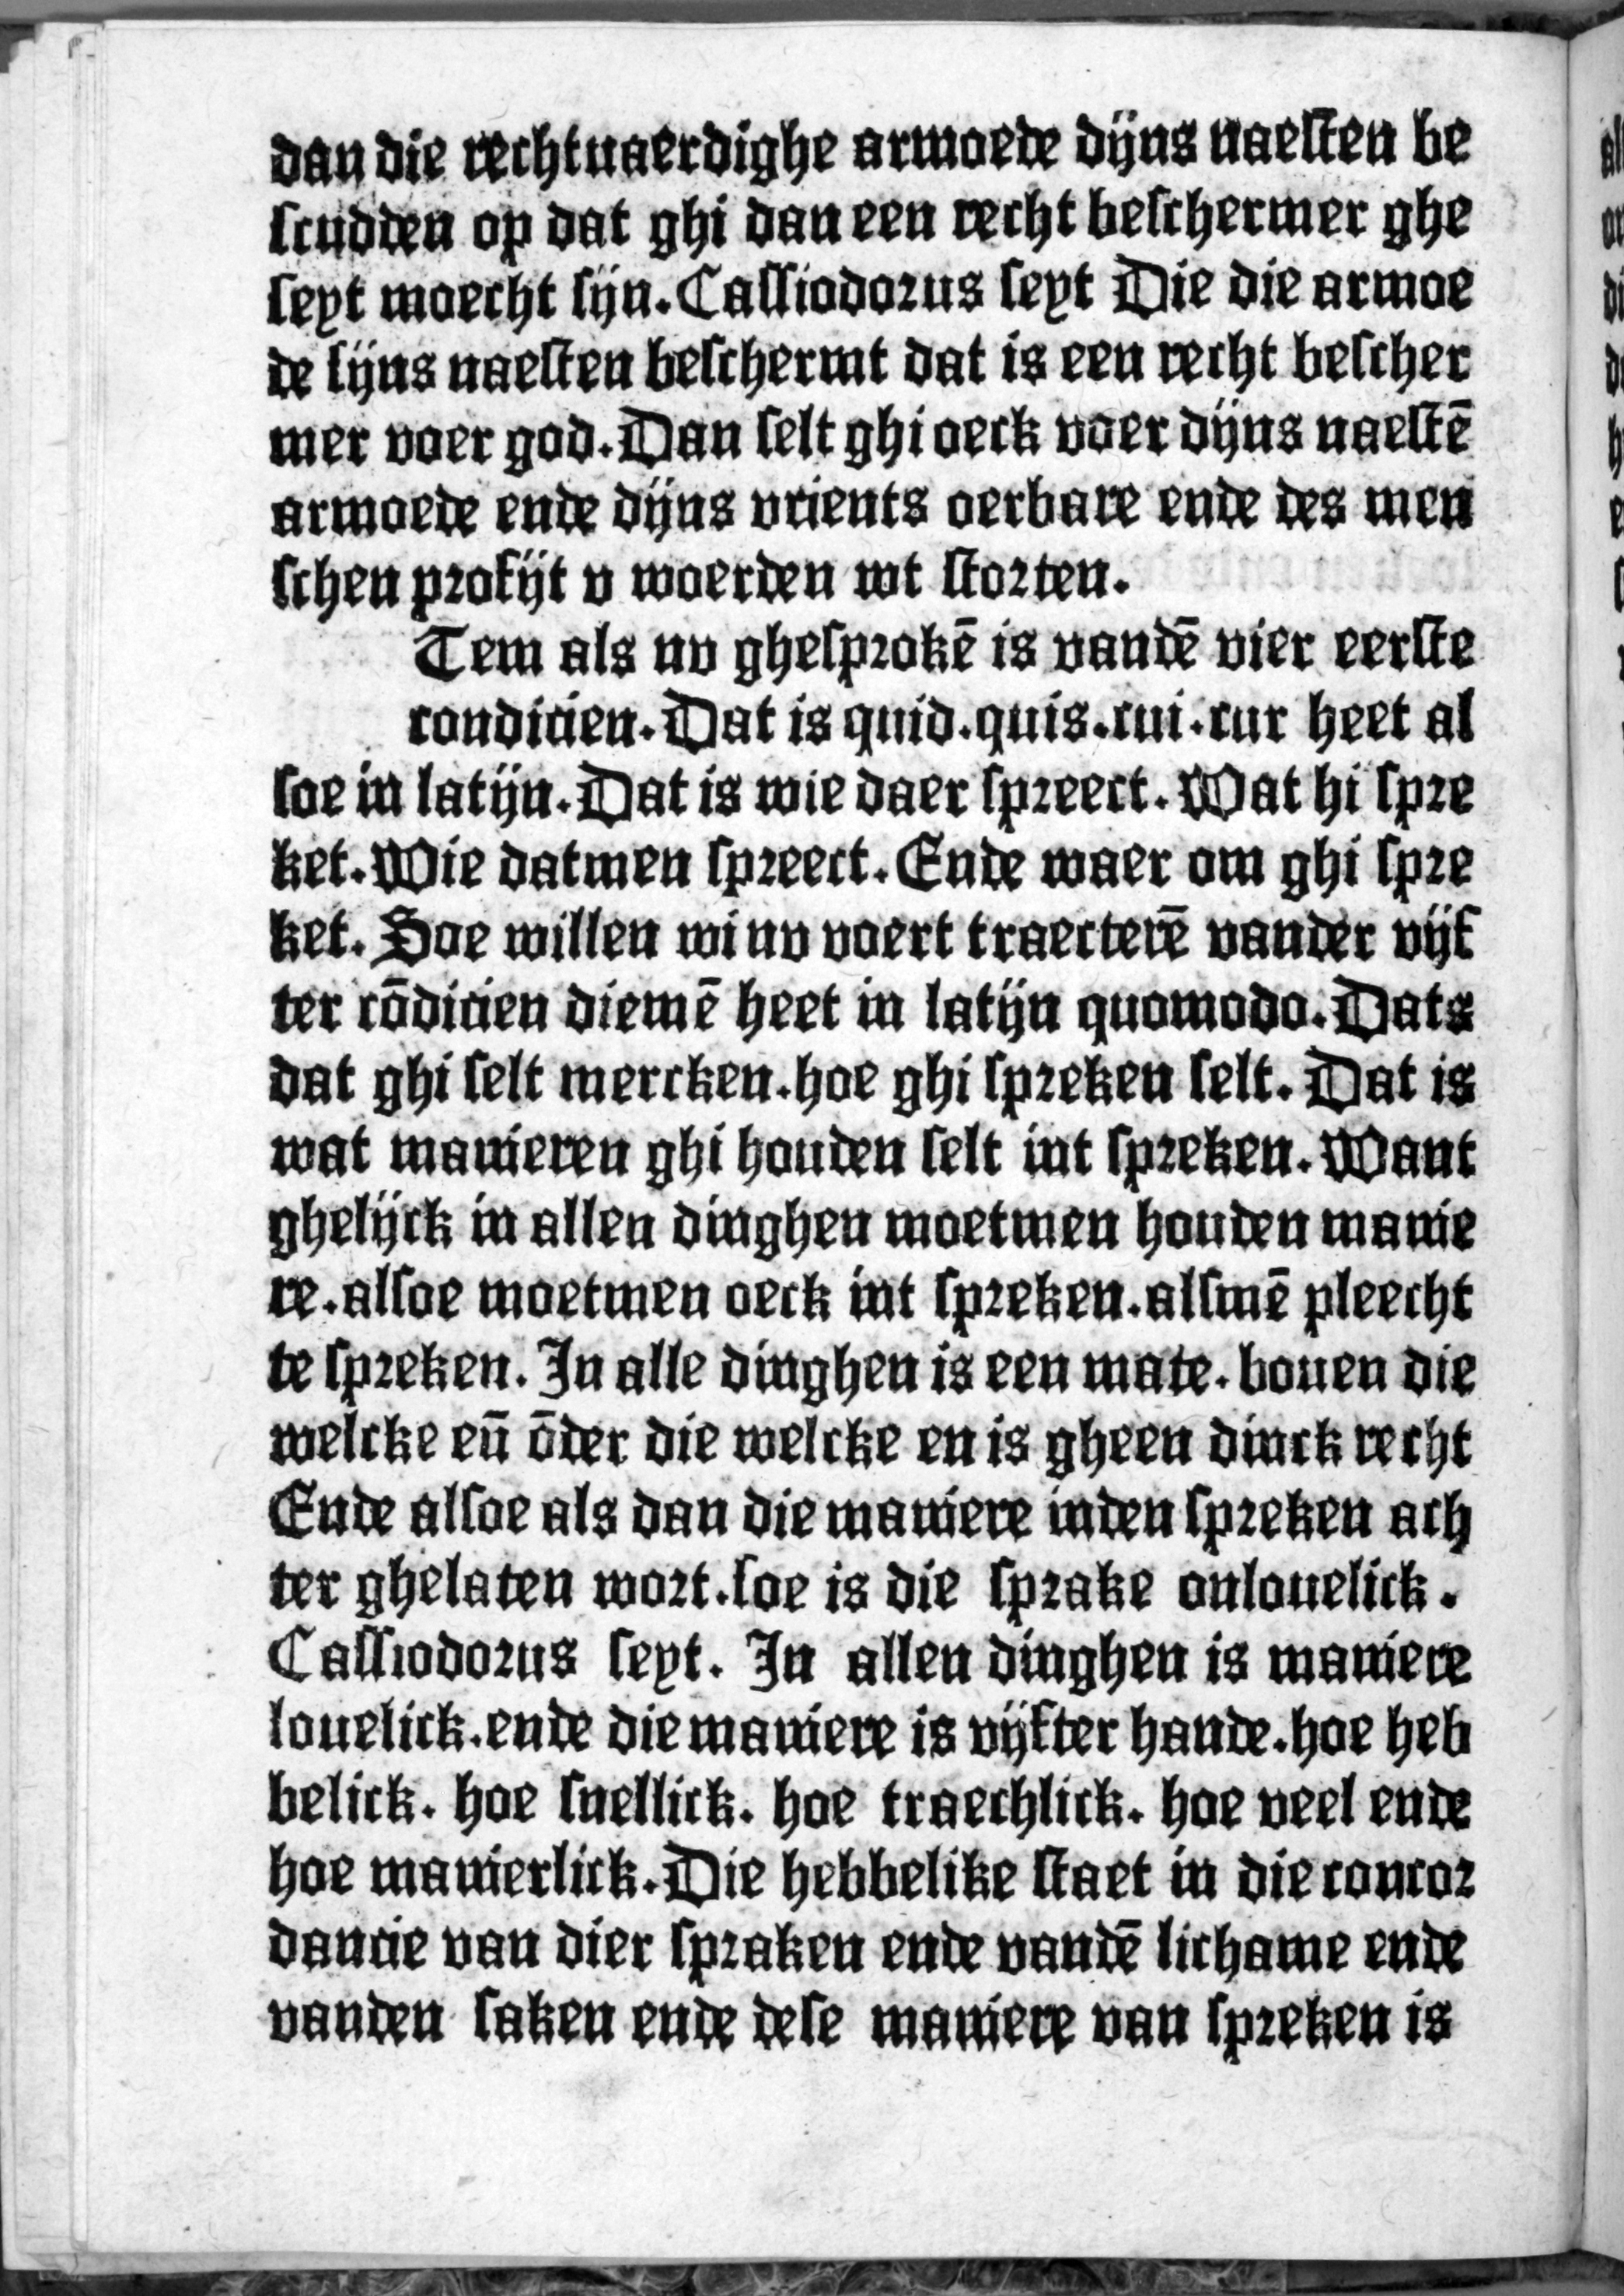 dan die rechtuaerdighe armoede dijns naeſten be
ſcudden op dat ghi dan een recht beſchermer ghe
ſeyt moecht ſijn. Caſſiodorus ſeyt Die die armoe
de ſijns naeſten beſchermt dat is een recht beſcher
mer voer god. Dan ſelt ghi oeck voer dijns naeſtē
armoede ende dijns vrients oerbare ende des men
ſchen profijt v woerden wt ſtorten.
Tem als nv gheſprokē is vandē vier eerſte
condicien. Dat is quid. quis. cui. cur heet al
ſoe in latijn. Dat is wie daer ſpreect. Wat hi ſpre
ket. Wie datmen ſpreect. Ende waer om ghi ſpre
ket. Soe willen wi nv voert traecterē vander vijf
ter cōdicien diemē heet in latijn quomodo. Dats
dat ghi ſelt mercken. hoe ghi ſpreken ſelt. Dat is
wat manieren ghi houden ſelt int ſpreken. Want
ghelijck in allen dinghen moetmen houden manie
re. alſoe moetmen oeck int ſpreken. alſmē pleecht
te ſpreken. In alle dinghen is een mate. bouen die
welcke eñ ōder die welcke en is gheen dinck recht
Ende alſoe als dan die maniere inden ſpreken ach
ter ghelaten wort. ſoe is die ſprake onlouelick.
Caſſiodorus ſeyt. In allen dinghen is maniere
louelick. ende die maniere is vijfter hande. hoe heb
belick. hoe ſnellick. hoe traechlick. hoe veel ende
hoe manierlick. Die hebbelike ſtaet in die concor
dancie van dier ſpraken ende vandē lichame ende
vanden ſaken ende deſe maniere van ſpreken is